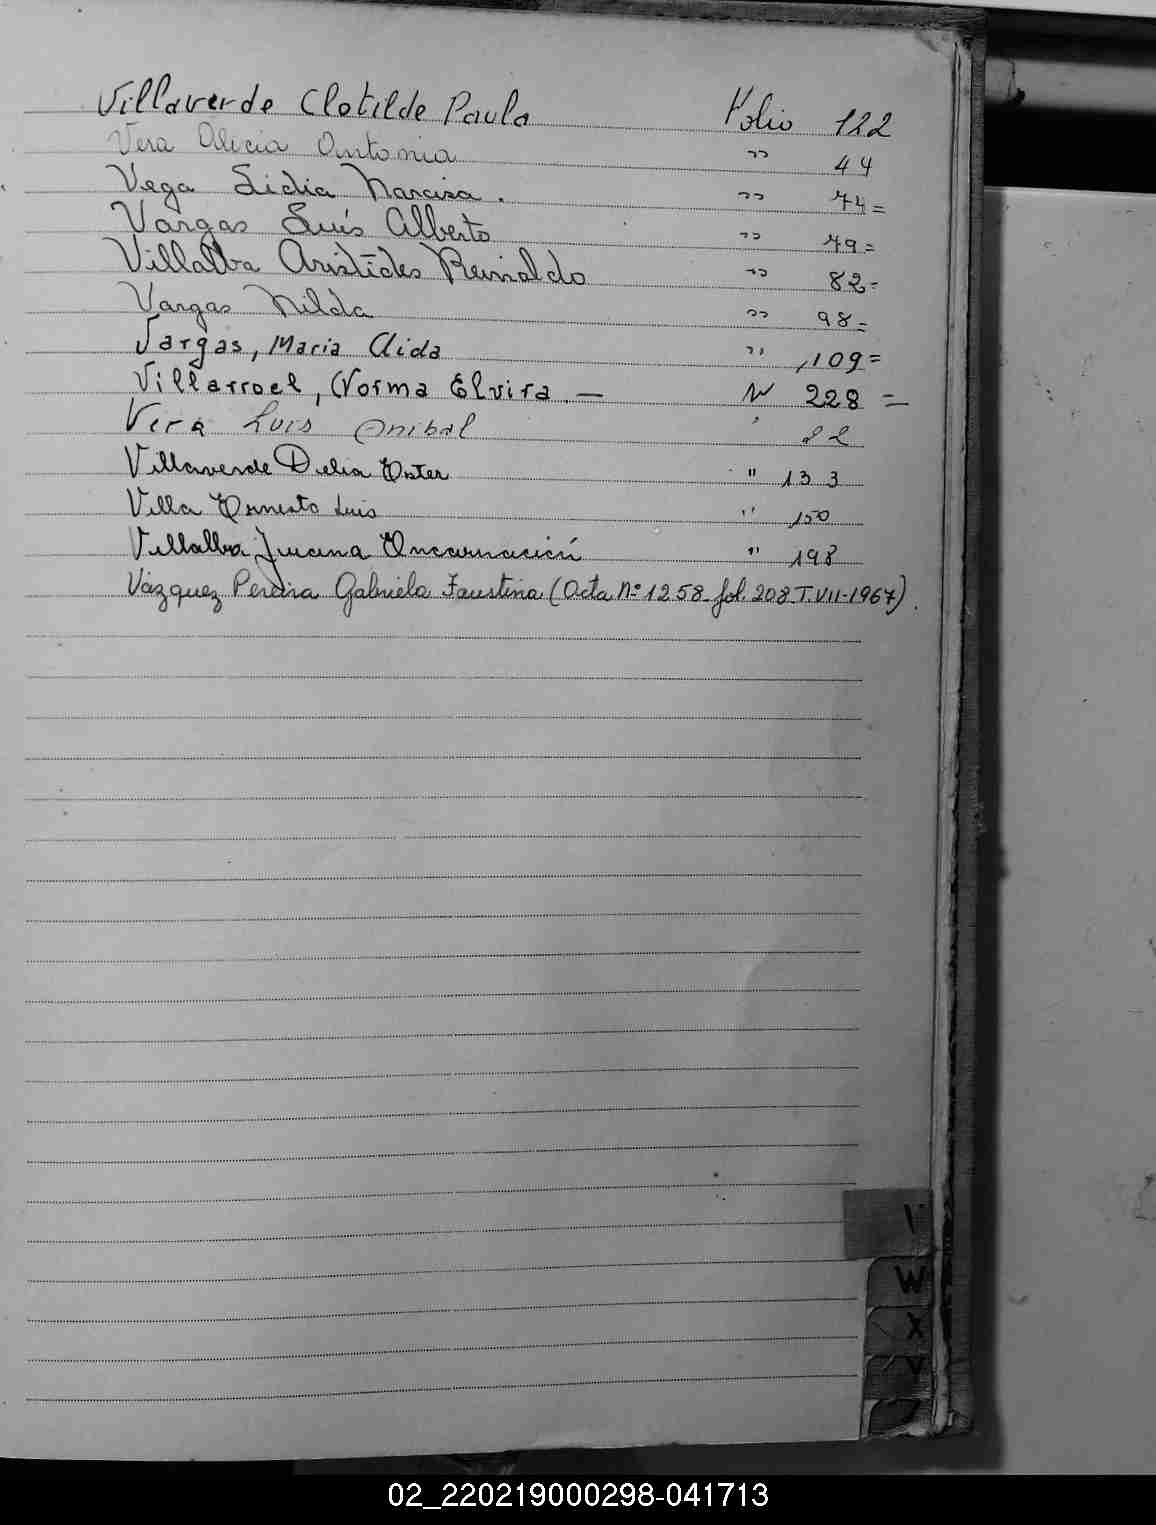 Villaverde Clotilde Paula Folio 122
Vera Alicia Antonia " 44
Vega Lidia Narcisa. " 74=
Vargas Luís Alberto " 79=
Villalba Arístides Reinaldo " 82=
Vargas Nilda " 98=
Vargas, Maria Aida " 109=
Villarroel, Norma Elvira.— " 228=
Vera Luis Anibal " 22
Villaverde Delia Ester " 133
Villa Ernesto Luis " 150
Villalba Encarnación " 198
Vázquez Pereira Gabriela Faustina (Acta Nº 1258 fol. 208 T.VII-1967).
V
W
X
Y
02_220219000298-041713